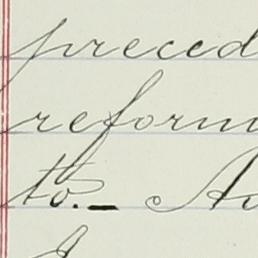 preced
reform
to. — Ad